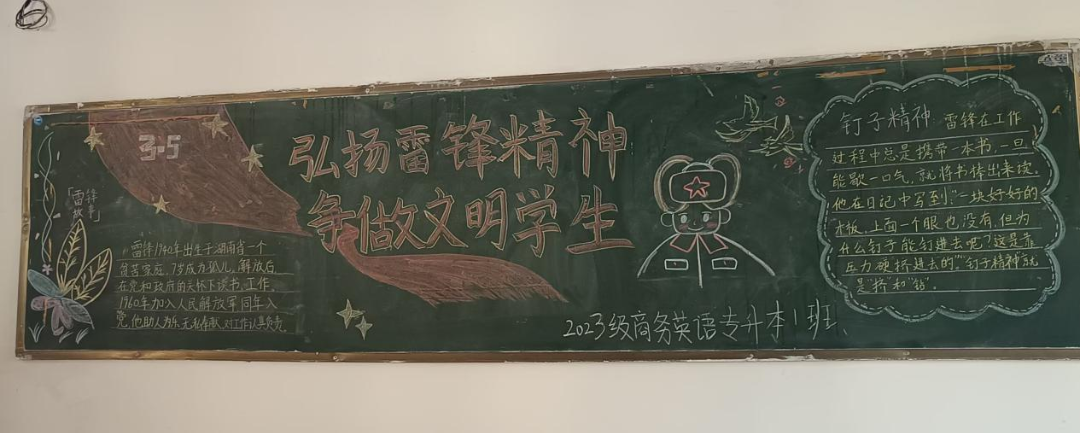 3·5
弘扬雷锋精神
争做文明学生
「雷锋
故事」
雷锋1940年出生于湖南省一个
贫苦家庭,7岁成为孤儿,解放后
在党和政府的关怀下读书、工作。
1960年加入人民解放军同年入
党,他助人为乐,无私奉献,对工作认真负责
2023级商务英语专升本1班
钉子精神:雷锋在工作
过程中总是携带一本书,一旦
能歇一口气,就将书拿出来读。
他在日记中写到:"一块好好的
木板,上面一个眼也没有,但为
什么钉子能钉进去呢?这是靠
压力硬挤进去的","钉子精神"就
是"挤"和"钻"。